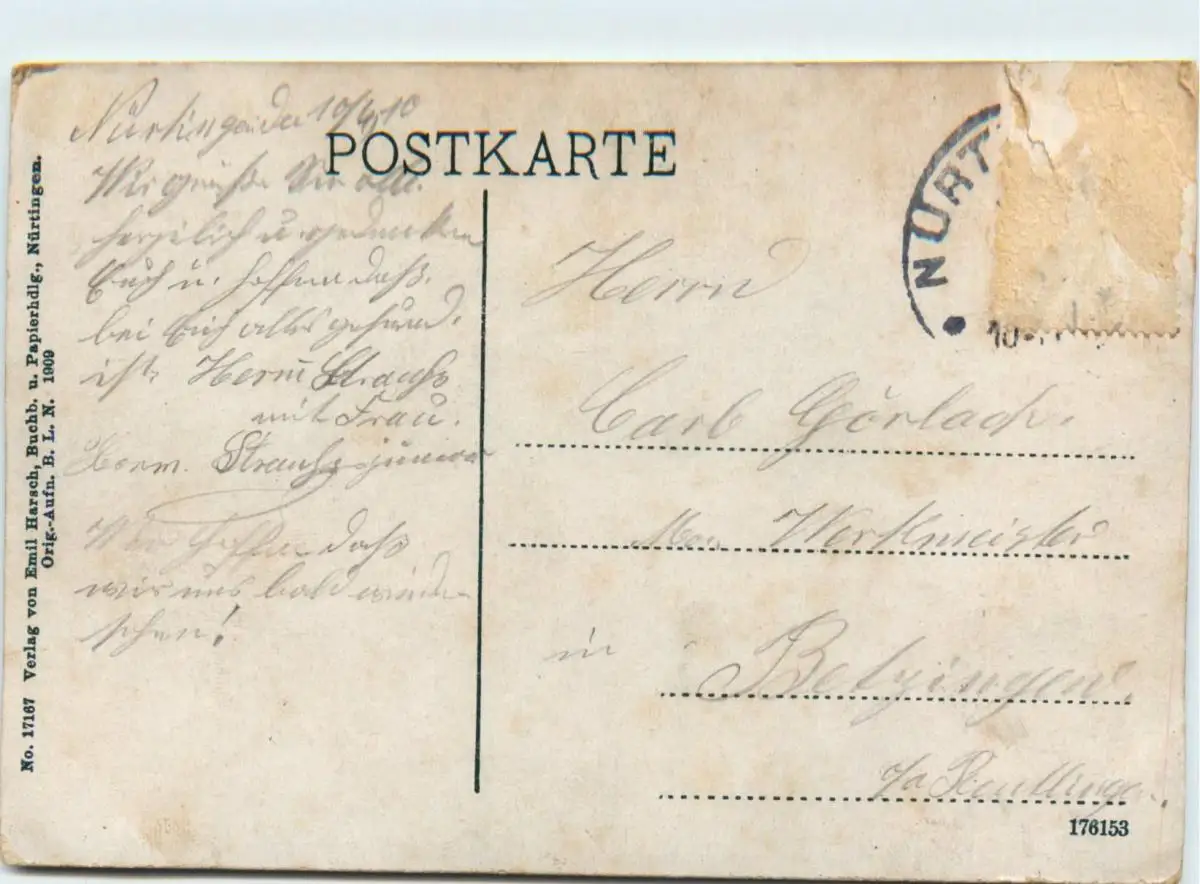 POSTKARTE
Nürtingen den 10/4 10
Wir grüße Sie alle
herzlich u. gedenken
Euch u. hoffen daß
bei Euch alles gesund
ist. Herm Strauß
mit Frau.
Herm. Strauß junior
Wir hoffen daß
wir uns bald wieder
sehen!
NÜRT
Herrn
Carl Görlach.
Werkmeister
in Betzingen.
Reutlingen.
176153
No. 17167 Verlag von Emil Harsch, Buchb. u. Papierhdlg., Nürtingen.
Orig.-Aufn. B. L. N. 1909